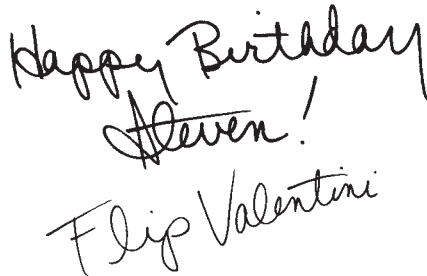 Happy Birthday
Steven!
Flip Valentini